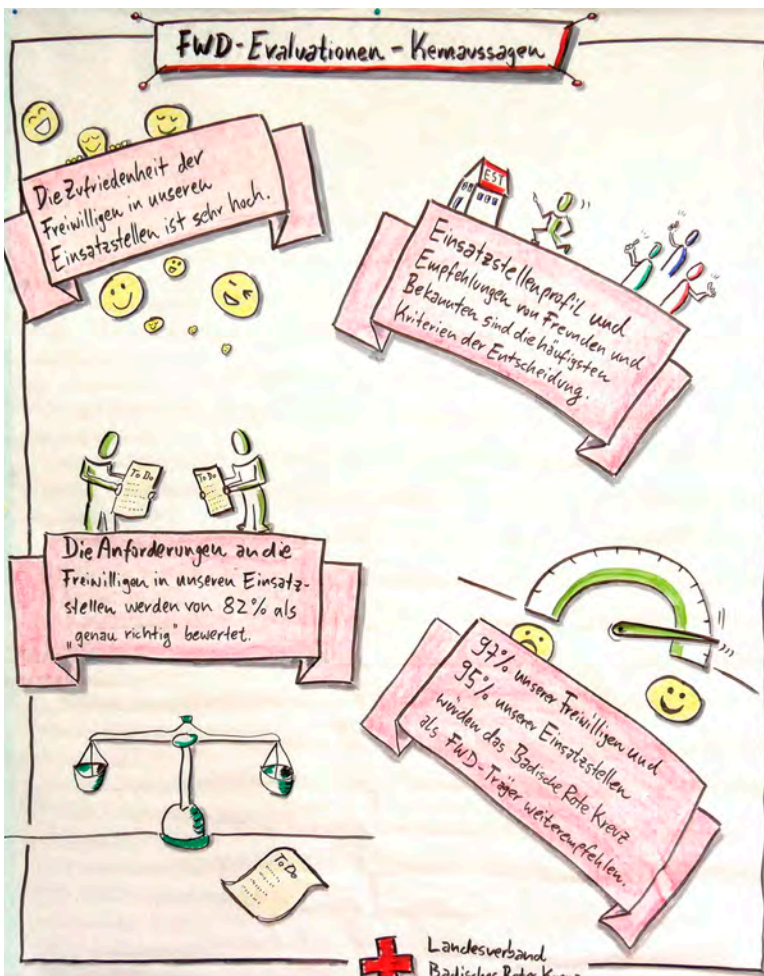 FWD-Evaluationen - Kernaussagen
Die Zufriedenheit der
Freiwilligen in unseren
Einsatzstellen ist sehr hoch.
EST
Einsatzstellenprofil und
Empfehlungen von Freunden und
Bekannten sind die häufigsten
Kriterien der Entscheidung.
To Do
To Do
Die Anforderungen an die
Freiwilligen in unseren Einsatz-
stellen werden von 82% als
„genau richtig" bewertet.
97% unserer Freiwilligen und
95% unserer Einsatzstellen
würden das Badische Rote Kreuz
als FWD-Träger weiterempfehlen.
To Do
Landesverband
Badisches Rotes Kreuz